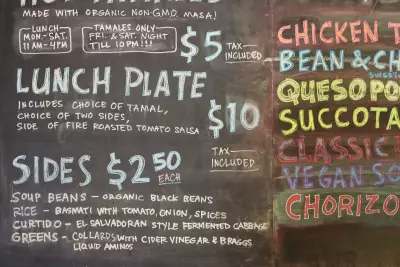 HOT TAMALES
MADE WITH ORGANIC NON-GMO MASA!
LUNCH
MON.-SAT.
11AM-4PM
TAMALES ONLY
FRI. & SAT. NIGHT
TILL 10PM!!!
$5
TAX
INCLUDED
LUNCH PLATE
INCLUDES CHOICE OF TAMAL,
CHOICE OF TWO SIDES,
SIDE OF FIRE ROASTED TOMATO SALSA
$10
TAX
INCLUDED
SIDES $2.50
EACH
SOUP BEANS - ORGANIC BLACK BEANS
RICE - BASMATI WITH TOMATO, ONION, SPICES
CURTIDO - EL SALVADORAN STYLE FERMENTED CABBAGE
GREENS - COLLARDS WITH CIDER VINEGAR & BRAGGS
LIQUID AMINOS
CHICKEN T
BEAN & CH
QUESO PO
SUCCOTA
CLASSIC
VEGAN SO
CHORIZO